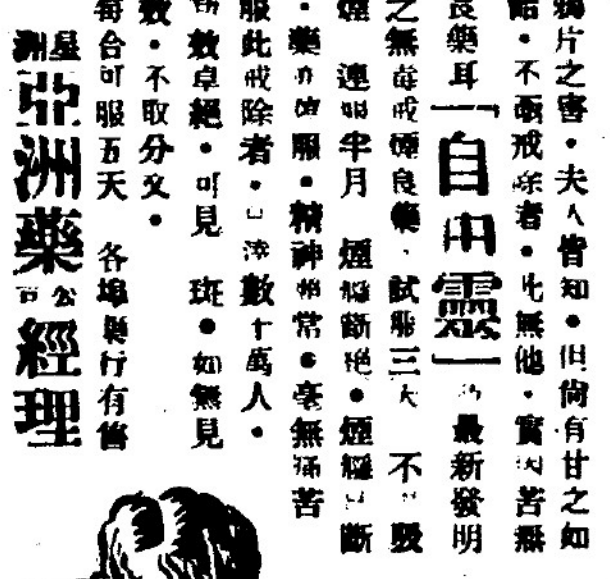 鴉片之害・夫人皆知・但尙有甘之如
飴・不亟戒除者・此無他・實因苦無
良藥耳「自由靈」乃最新發明
之無毒戒煙良藥・試服三天 不 吸
煙 連服半月 煙癮斷絕・煙癮 斷
・藥亦停服・精神如常・毫無痛苦
服此戒除者・口沫數十萬人・
效卓絕・可見 斑・如無見
效・不取分文・
每台可服五天 各埠藥行有售
星洲亞洲藥公司經理